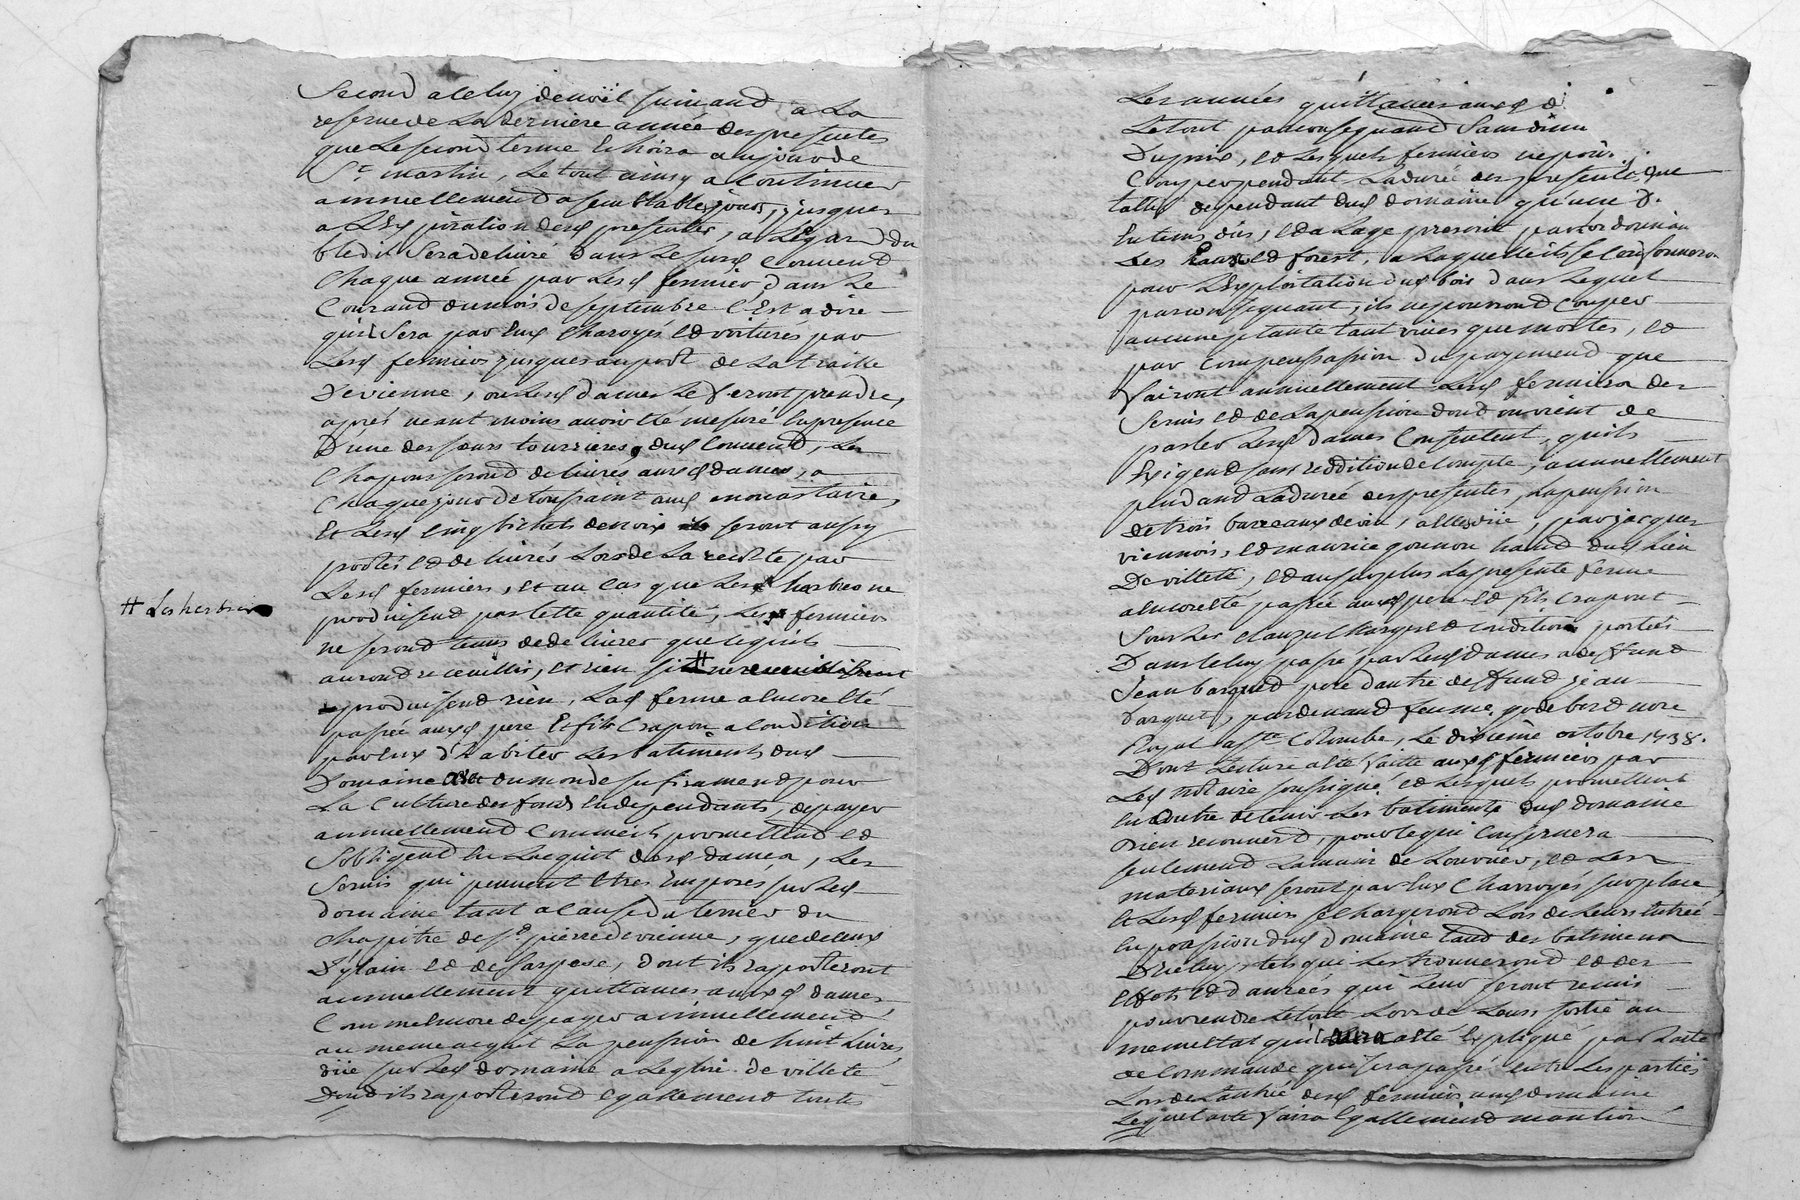 Second a celuy denoël suivand, a La
reserve de La derniere année des presentes
que Le second terme Echoira au jour de
St martin, Le tout ainsy a Continuer
annuellement a semblables jours, jusques
a L'Expiration desd presentes, a L'Egard du
bled il Sera delivré dans Le susd Couvend
Chaque année par Lesd fermiers, dans Le
Courand du mois de septembre C'Est a dire
quil Sera par Eux Charoyés Et voiturés par
Lesd fermiers jusques au port de La traille
De vienne, ou Lesd dames Le feront prendre,
aprés neant moins avoir Eté mesuré En presence
D'une des sœurs tourrieres dud Couvend, Les
Chapons serond delivrés auxd dames, a
Chaque jour de toussaint aud monastaire,
Et Lesd Cinq bichets de noix seront aussy
portés Et delivrés Lors de La recolte par
Lesd fermiers, Et au Cas que Les arbres ne
produisend pas Cette quantité, Les fermiers
ne serond tenus de delivrer que ce quils
aurond receuillis, Et rien si #
# Les herbres
produisend rien, Lad ferme a Encore Eté
passée auxd pere Et fils Crapon a Condition
par Eux d'habiter Les batiments dud
Domaine du monde sufisamend pour
La Culture des fonds En dependants, de payer
annuellemend Comme ils promettend Et
s'obligend En L'acquit desd dames, Les
Servis qui peuvent Etres Imposés sur Led
domaine tant a Cause du terrier du
Chapitre de St pierre de vienne, que de Ceux
D'ylain Et de sarpese, dont ils raporteront
annuellement quittances auxd dames
Comme Encore de payer annuellemend
au meme acquit La pension de huit Livres
düe sur Led domaine a L'eglise de villete
Dond ils raporterond Egallemend toutes
Les années quittances auxd d.
Le tout par Consequand Sans dimin
Du prix, Et Lesquels fermiers ne pour.
Couper pendant La durée des presentes, que
taillis dependant dud domaine qu'une
En tems dûs, Et a L'age prescrit par L'ordonnan
des Eaux Et forest, a Laquelle ils se Conformeron
pour L'Exploitation dud bois dans Lequel
par Consequant, ils ne pourrond Couper
aucune plante tant vives que mortes, Et
par Compensation du payemend que
fairont annuellement Lesd fermiers des
Servis Et de La pension dond on vient de
parler Lesd dames Consentent, quils
Exigend sans reddition de Compte, annuellement
pendand La durée des presentes, La pension
de trois barreaux de vin, a Elles düe, par jacques
viennois, Et maurice gonnon haud dud Lieu
De villete, Et au surplus La presente ferme
a Encore Eté passée auxd pere Et fils Crapont
Sous Les Clauzes Charges Et Conditions portées
Dans Celuy passé par Lesd dames a deffund
Jean barqued pere d'autre deffund jean
barquet, par devand feu me godebord nore
Royal a Ste Colombe, Le dixième octobre 1738.
Dont Lecture a Eté faitte auxd fermiers par
Led notaire soussigné Et Lesquels promettent
En outre de tenir Les batiments dud domaine
bien recouverd, pour Ce qui Concernera
seulemend La main de L'ouvrier, Et Les
materiaux seront par Eux Charroyés sur place,
Et Lesd fermiers se Chargerond Lors de Leurs Entrée
En possession dud domaine tand des batimens
D'icelluy, tels qui Les trouverond Et des
Effets Et danrées qui Leur seront remis
pour rendre Le tout Lors de Leur sortie au
meme Etat quil aura Eté Expliqué par L'acte
de Commande qui sera passé entre Les parties
Lors de L'antrée desd fermiers aud domaine
Lequel acte faira Egallemend mantion